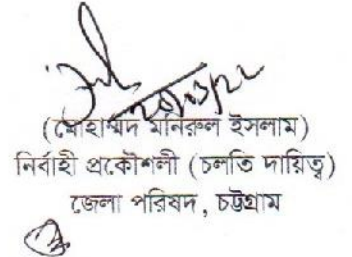 (মোহাম্মদ মনিরুল ইসলাম)
নির্বাহী প্রকৌশলী (চলতি দায়িত্ব)
জেলা পরিষদ, চট্টগ্রাম